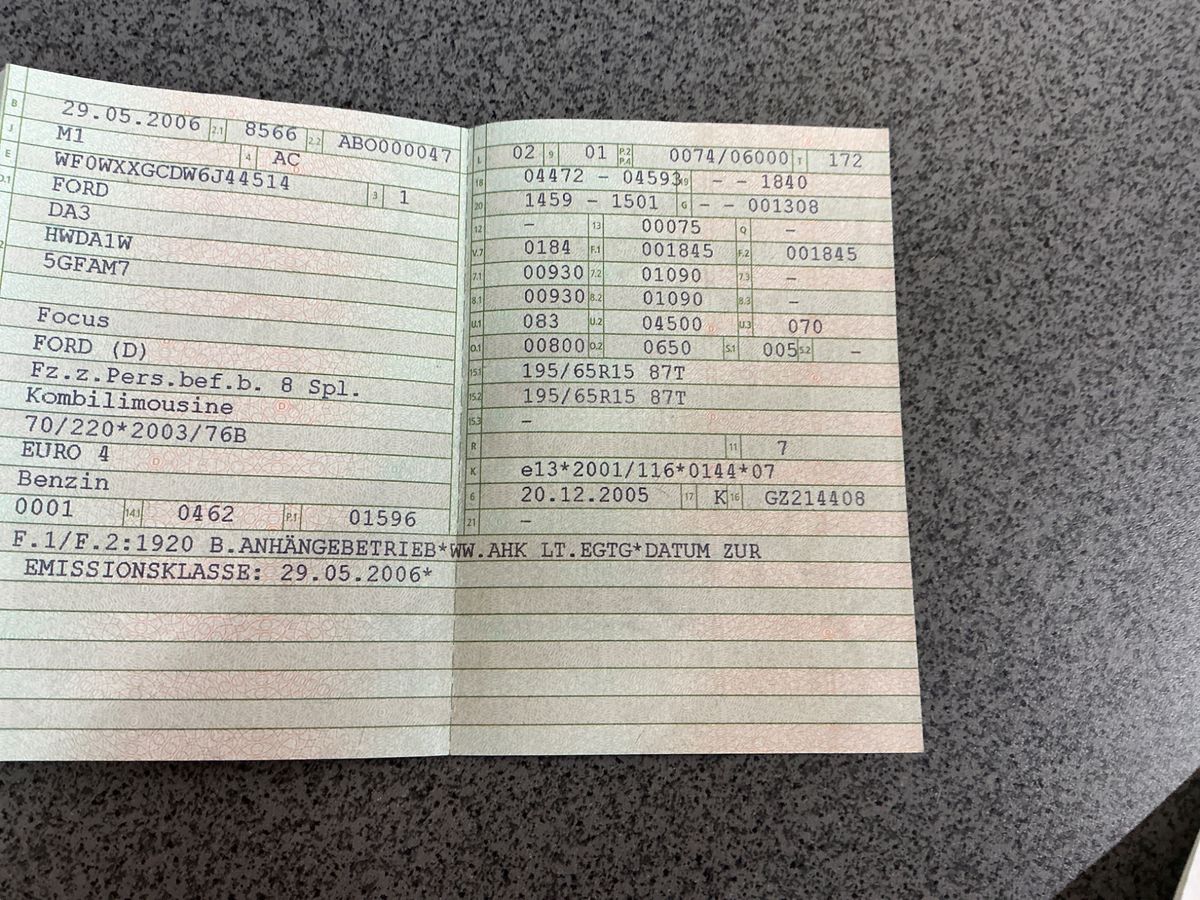 B 29.05.2006 2.1 8566 2.2 ABO000047
J M1 4 AC
E WF0WXXGCDW6J44514 3 1
D.1 FORD
DA3
HWDA1W
2 5GFAM7
Focus
FORD (D)
Fz.z.Pers.bef.b. 8 Spl.
Kombilimousine
70/220*2003/76B
EURO 4
Benzin
0001 14.1 0462 P.1 01596
L 02 9 01 P.2 P.4 0074/06000 T 172
18 04472 - 04593 19 - - 1840
20 1459 - 1501 G - - 001308
12 - 13 00075 Q -
V.7 0184 F.1 001845 F.2 001845
7.1 00930 7.2 01090 7.3 -
8.1 00930 8.2 01090 8.3 -
U.1 083 U.2 04500 U.3 070
O.1 00800 O.2 0650 S.1 005 S.2 -
15.1 195/65R15 87T
15.2 195/65R15 87T
15.3 -
R 11 7
K e13*2001/116*0144*07
6 20.12.2005 17 K 16 GZ214408
21 -
F.1/F.2:1920 B.ANHÄNGEBETRIEB*WW.AHK LT.EGTG*DATUM ZUR
EMISSIONSKLASSE: 29.05.2006*